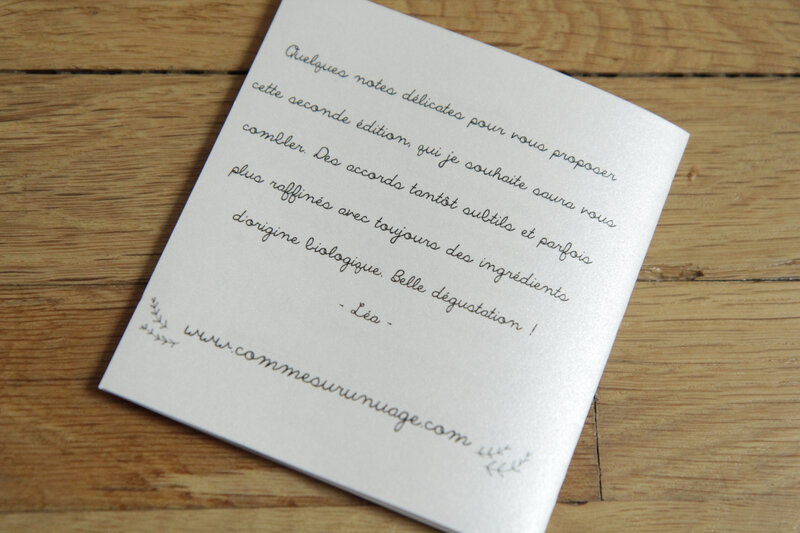 Quelques notes délicates pour vous proposer
cette seconde édition, qui je souhaite saura vous
combler. Des accords tantôt subtils et parfois
plus raffinés avec toujours des ingrédients
d'origine biologique. Belle dégustation !
- Léa -
www.commesurunuage.com